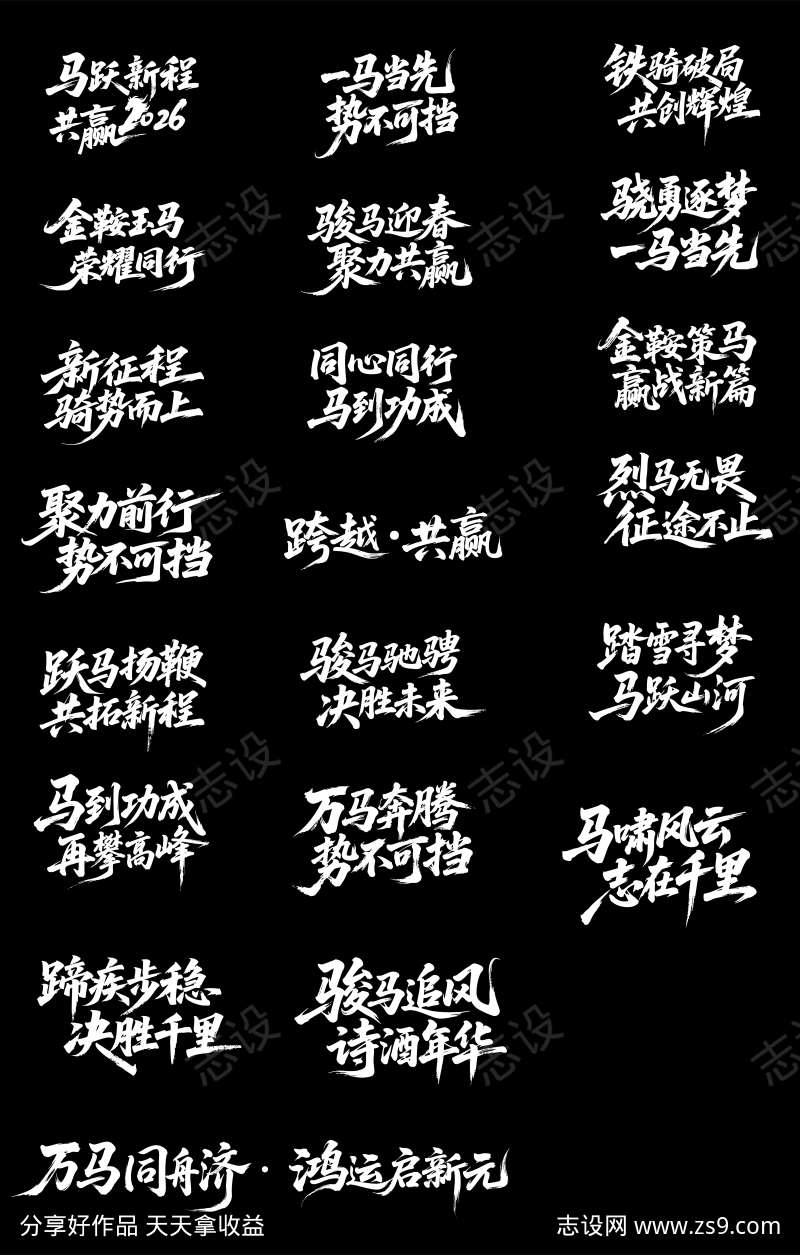 马跃新程
共赢2026
一马当先
势不可挡
铁骑破局
共创辉煌
金鞍玉马
荣耀同行
骏马迎春
聚力共赢
骁勇逐梦
一马当先
新征程
骑势而上
同心同行
马到功成
金鞍策马
赢战新篇
聚力前行
势不可挡
跨越·共赢
烈马无畏
征途不止
跃马扬鞭
共拓新程
骏马驰骋
决胜未来
踏雪寻梦
马跃山河
马到功成
再攀高峰
万马奔腾
势不可挡
马啸风云
志在千里
蹄疾步稳
决胜千里
骏马追风
诗酒年华
万马同舟济·鸿运启新元
分享好作品 天天拿收益
志设网 www.zs9.com
志设
志设
志设
志设
志设
志设
志设
志设
志设
志设
志设
志设